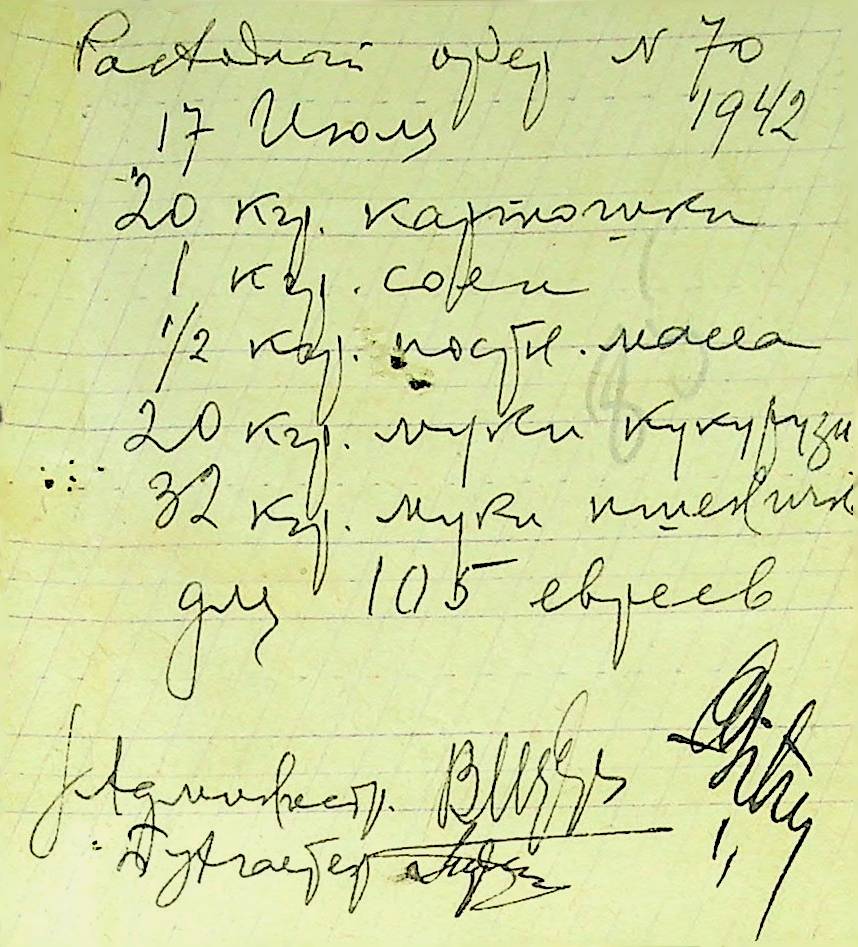 Расходный ордер N 70
17 Июля 1942
20 кгр. картошки
1 кгр. соли
1/2 кгр. постн. масла
20 кгр. муки кукурузн
32 кгр. муки пшеничн
для 105 евреев
Администр.
Бухгалтер